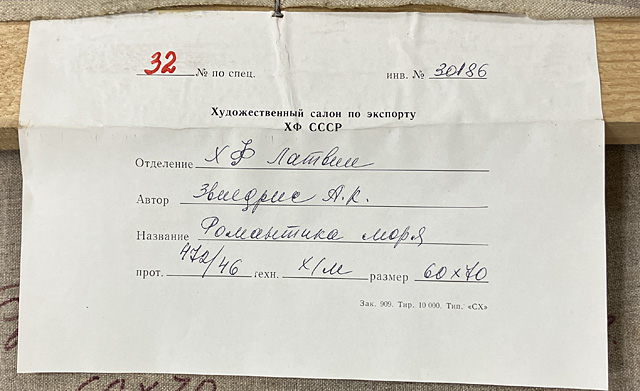 32 № по спец. инв. № 30186
Художественный салон по экспорту
ХФ СССР
Отделение ХФ Латвии
Автор Звиедрис А.К.
Название Романтика моря
прот. 472/46 техн. х/м размер 60х70
Зак. 909. Тир. 10 000. Тип. «СХ»
60х70